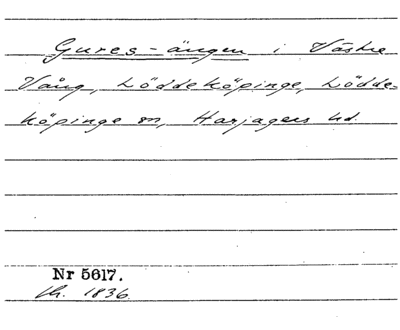 Gures-ängen i Västra
Vång, Löddeköpinge, Lödde-
köpinge sn, Harjagers hd.
Nr 5617.
1836.